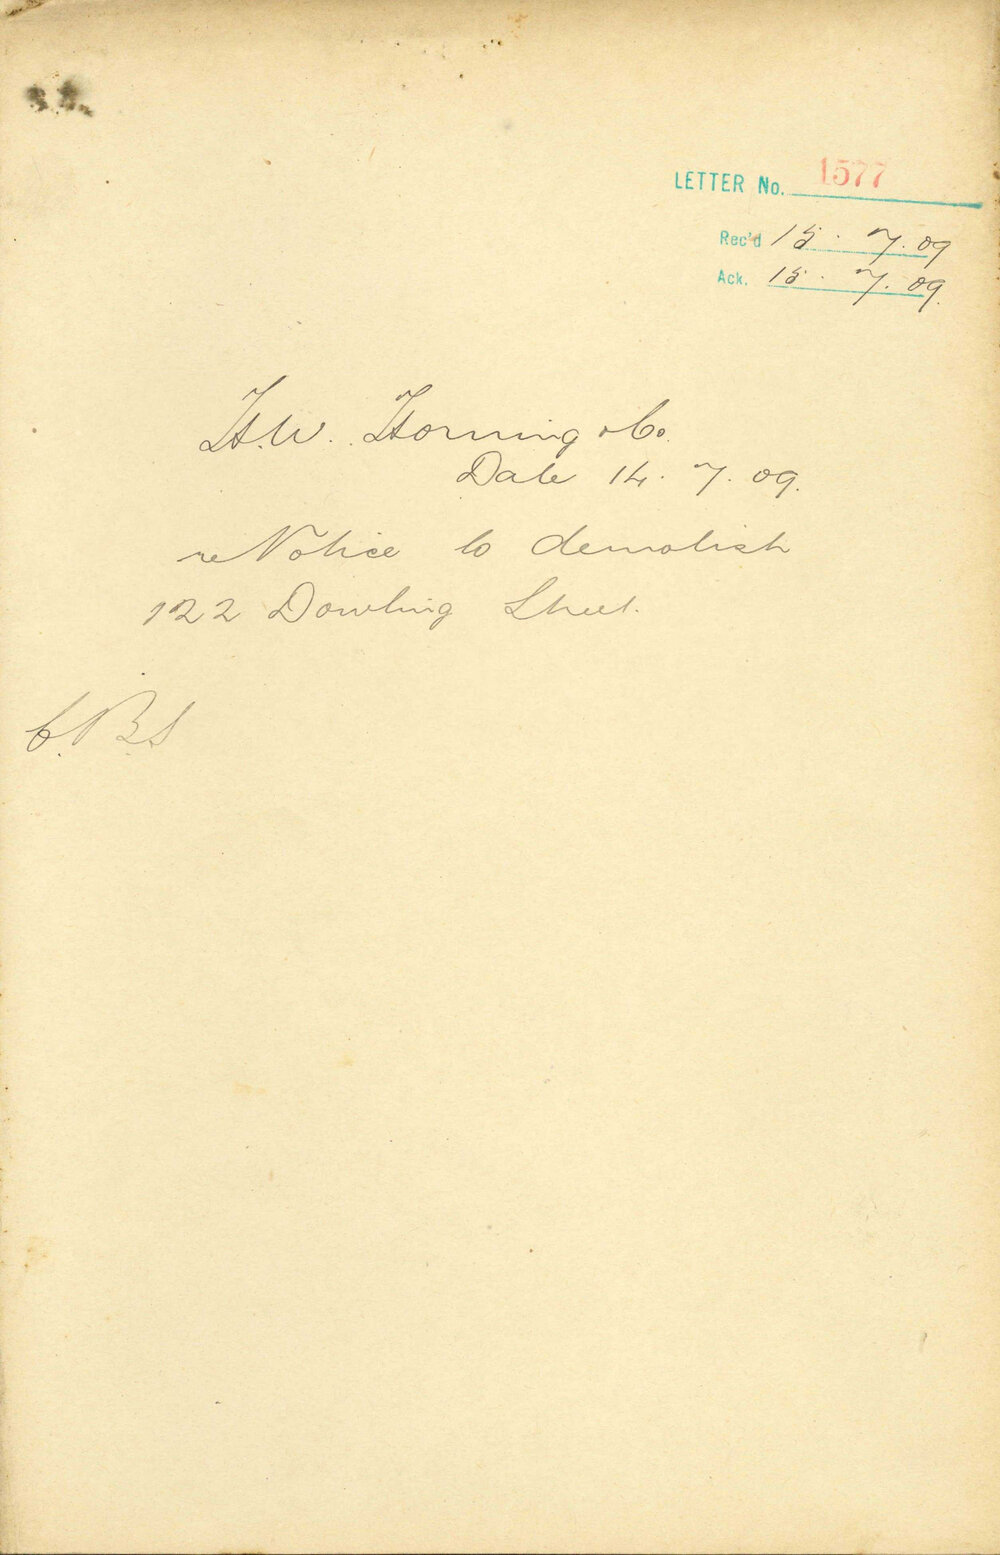 LETTER No. 1577
Rec'd 15. 7. 09
Ack. 15. 7. 09.
H.W. Horning & Co.
Date 14. 7. 09.
re Notice to demolish
122 Dowling Street.
C.B.S